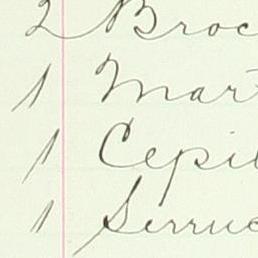 2 Broc
1 Mart
1 Cepil
1 Serruc